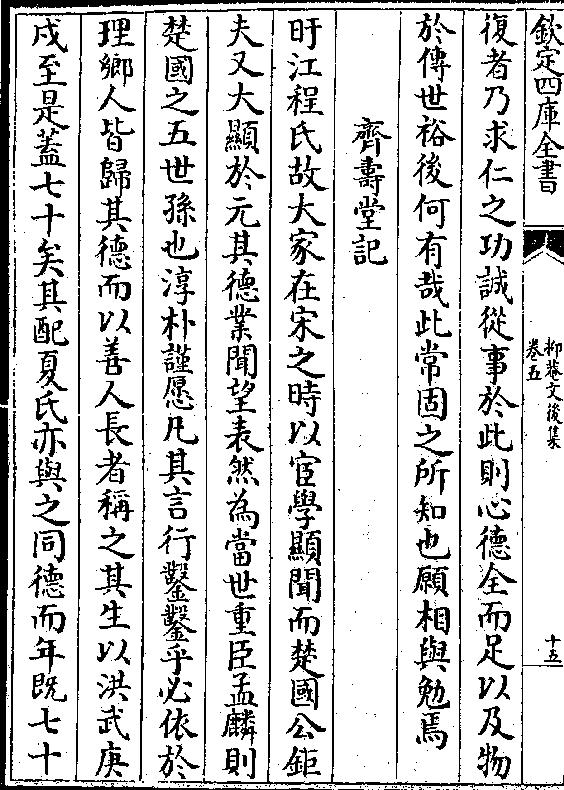 欽定四庫全書
抑菴文後集
卷五
十五
復者乃求仁之功誠從事於此則心德全而足以及物
於傳世裕後何有哉此常固之所知也願相與勉焉
齊壽堂記
旴江程氏故大家在宋之時以宦學顯聞而楚國公鉅
夫又大顯於元其德業聞望表然為當世重臣孟麟則
楚國之五世孫也淳朴謹愿凡其言行鑿鑿乎必依於
理鄉人皆歸其德而以善人長者稱之其生以洪武庚
戌至是蓋七十矣其配夏氏亦與之同德而年既七十